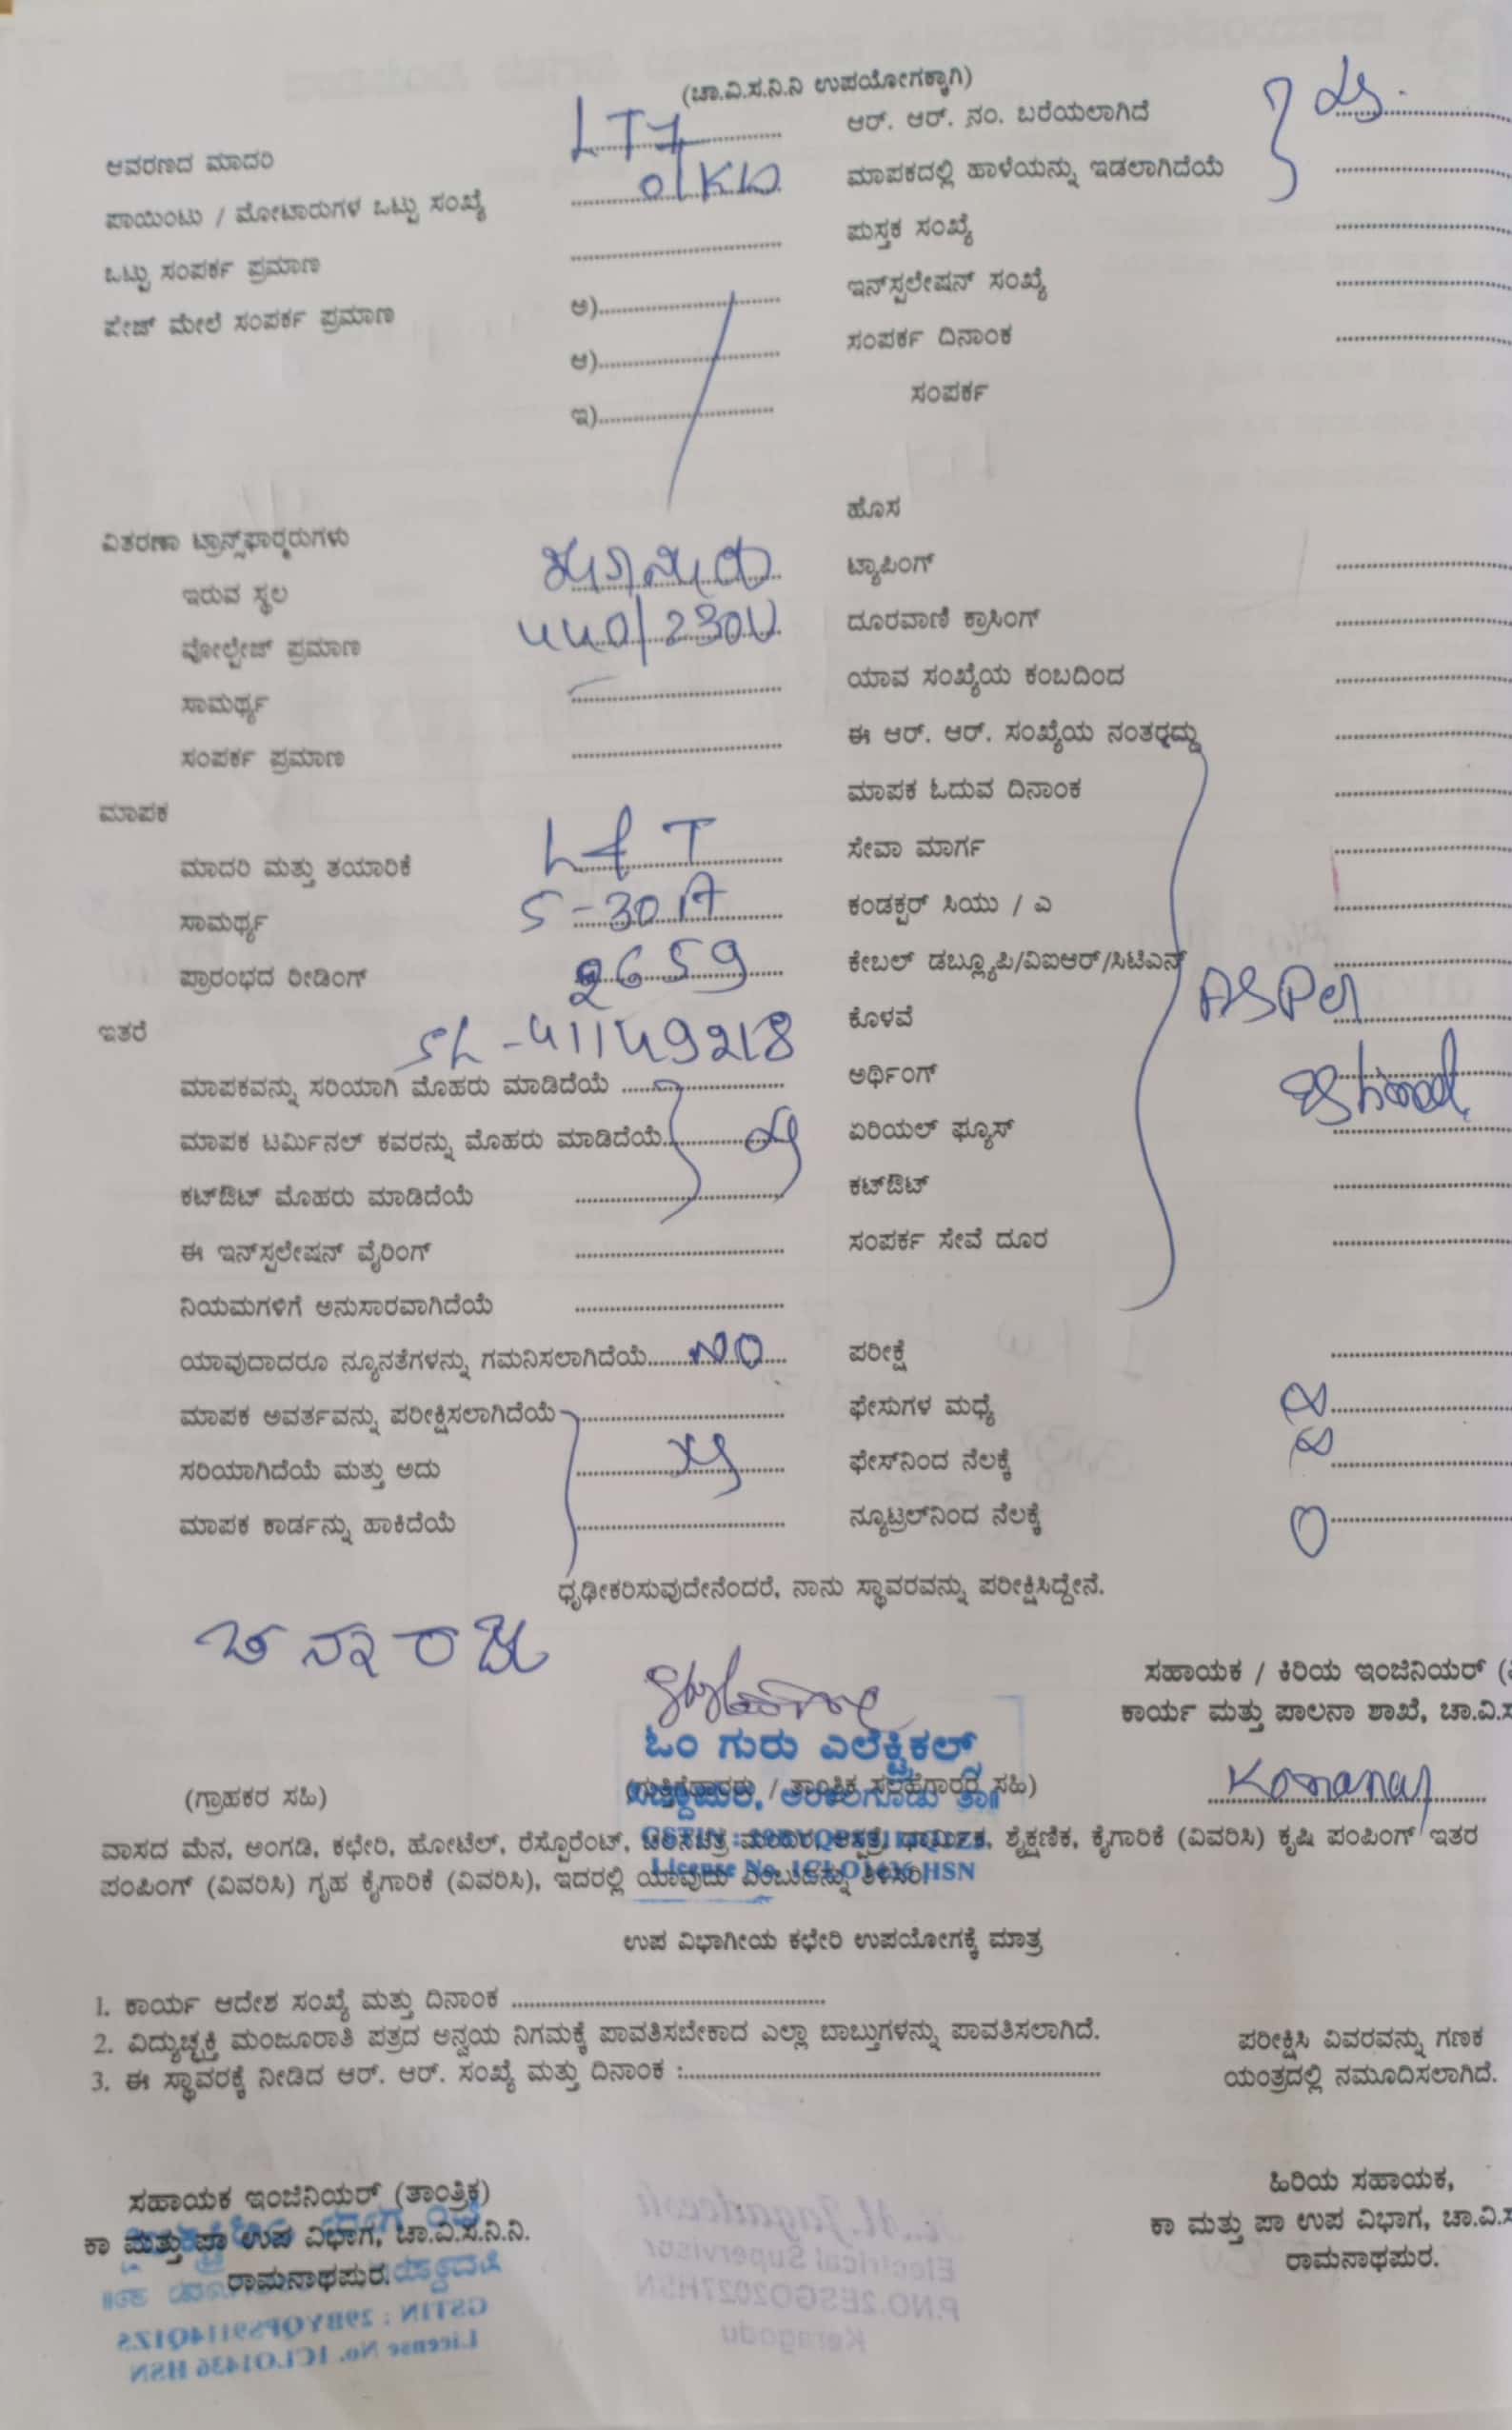 (ಚಾ.ವಿ.ಸ.ನಿ.ನಿ ಉಪಯೋಗಕ್ಕಾಗಿ)
ಆವರಣದ ಮಾದರಿ LT7
ಪಾಯಿಂಟು / ಮೋಟಾರುಗಳ ಒಟ್ಟು ಸಂಖ್ಯೆ
ಒಟ್ಟು ಸಂಪರ್ಕ ಪ್ರಮಾಣ
ಪೇಜ್ ಮೇಲೆ ಸಂಪರ್ಕ ಪ್ರಮಾಣ ಅ)
ಆ)
ಇ)
ವಿತರಣಾ ಟ್ರಾನ್ಸ್‌ಫಾರ್ಮರುಗಳು
ಇರುವ ಸ್ಥಲ
ವೋಲ್ಟೇಜ್ ಪ್ರಮಾಣ 440/230V
ಸಾಮರ್ಥ್ಯ
ಸಂಪರ್ಕ ಪ್ರಮಾಣ
ಮಾಪಕ
ಮಾದರಿ ಮತ್ತು ತಯಾರಿಕೆ L&T
ಸಾಮರ್ಥ್ಯ 5-30A
ಪ್ರಾರಂಭದ ರೀಡಿಂಗ್ 2659
ಇತರೆ SL-41149218
ಮಾಪಕವನ್ನು ಸರಿಯಾಗಿ ಮೊಹರು ಮಾಡಿದೆಯೆ
ಮಾಪಕ ಟರ್ಮಿನಲ್ ಕವರನ್ನು ಮೊಹರು ಮಾಡಿದೆಯೆ
ಕಟ್‌ಔಟ್ ಮೊಹರು ಮಾಡಿದೆಯೆ
ಈ ಇನ್‌ಸ್ಟಲೇಷನ್ ವೈರಿಂಗ್
ನಿಯಮಗಳಿಗೆ ಅನುಸಾರವಾಗಿದೆಯೆ
ಯಾವುದಾದರೂ ನ್ಯೂನತೆಗಳನ್ನು ಗಮನಿಸಲಾಗಿದೆಯೆ NO
ಮಾಪಕ ಅವರ್ತವನ್ನು ಪರೀಕ್ಷಿಸಲಾಗಿದೆಯೆ
ಸರಿಯಾಗಿದೆಯೆ ಮತ್ತು ಅದು
ಮಾಪಕ ಕಾರ್ಡನ್ನು ಹಾಕಿದೆಯೆ
ಆರ್. ಆರ್. ನಂ. ಬರೆಯಲಾಗಿದೆ
ಮಾಪಕದಲ್ಲಿ ಹಾಳೆಯನ್ನು ಇಡಲಾಗಿದೆಯೆ
ಪುಸ್ತಕ ಸಂಖ್ಯೆ
ಇನ್‌ಸ್ಟಲೇಷನ್ ಸಂಖ್ಯೆ
ಸಂಪರ್ಕ ದಿನಾಂಕ
ಸಂಪರ್ಕ
ಹೊಸ
ಟ್ಯಾಪಿಂಗ್
ದೂರವಾಣಿ ಕ್ರಾಸಿಂಗ್
ಯಾವ ಸಂಖ್ಯೆಯ ಕಂಬದಿಂದ
ಈ ಆರ್. ಆರ್. ಸಂಖ್ಯೆಯ ನಂತರದ್ದು
ಮಾಪಕ ಓದುವ ದಿನಾಂಕ
ಸೇವಾ ಮಾರ್ಗ
ಕಂಡಕ್ಟರ್ ಸಿಯು / ಎ
ಕೇಬಲ್ ಡಬ್ಲ್ಯೂಪಿ/ವಿಐಆರ್/ಸಿಟಿಎಸ್
ಕೊಳವೆ ASPer
ಅರ್ಥಿಂಗ್
ಏರಿಯಲ್ ಫ್ಯೂಸ್
ಕಟ್‌ಔಟ್
ಸಂಪರ್ಕ ಸೇವೆ ದೂರ
ಪರೀಕ್ಷೆ
ಫೇಸುಗಳ ಮಧ್ಯೆ
ಫೇಸ್‌ನಿಂದ ನೆಲಕ್ಕೆ
ನ್ಯೂಟ್ರಲ್‌ನಿಂದ ನೆಲಕ್ಕೆ 0
ಧೃಢೀಕರಿಸುವುದೇನೆಂದರೆ, ನಾನು ಸ್ಥಾವರವನ್ನು ಪರೀಕ್ಷಿಸಿದ್ದೇನೆ.
ಸಹಾಯಕ / ಕಿರಿಯ ಇಂಜಿನಿಯರ್
ಕಾರ್ಯ ಮತ್ತು ಪಾಲನಾ ಶಾಖೆ, ಚಾ.ವಿ.ಸ
ಓಂ ಗುರು ಎಲೆಕ್ಟ್ರಿಕಲ್ಸ್
(ಗ್ರಾಹಕರ ಸಹಿ)
(ಗುತ್ತಿಗೆದಾರರು / ತಾಂತ್ರಿಕ ಸಲಹೆಗಾರರ ಸಹಿ)
ವಾಸದ ಮೆನ, ಅಂಗಡಿ, ಕಛೇರಿ, ಹೋಟೆಲ್, ರೆಸ್ಟೋರೆಂಟ್, ಶೈಕ್ಷಣಿಕ, ಕೈಗಾರಿಕೆ (ವಿವರಿಸಿ) ಕೃಷಿ ಪಂಪಿಂಗ್ ಇತರ
ಪಂಪಿಂಗ್ (ವಿವರಿಸಿ) ಗೃಹ ಕೈಗಾರಿಕೆ (ವಿವರಿಸಿ), ಇದರಲ್ಲಿ ಯಾವುದು ಎಂಬುದನ್ನು ತಿಳಿಸಿರಿ
License No. 1CLO1436 HSN
ಉಪ ವಿಭಾಗೀಯ ಕಛೇರಿ ಉಪಯೋಗಕ್ಕೆ ಮಾತ್ರ
1. ಕಾರ್ಯ ಆದೇಶ ಸಂಖ್ಯೆ ಮತ್ತು ದಿನಾಂಕ
2. ವಿದ್ಯುಚ್ಛಕ್ತಿ ಮಂಜೂರಾತಿ ಪತ್ರದ ಅನ್ವಯ ನಿಗಮಕ್ಕೆ ಪಾವತಿಸಬೇಕಾದ ಎಲ್ಲಾ ಬಾಬ್ತುಗಳನ್ನು ಪಾವತಿಸಲಾಗಿದೆ.
3. ಈ ಸ್ಥಾವರಕ್ಕೆ ನೀಡಿದ ಆರ್. ಆರ್. ಸಂಖ್ಯೆ ಮತ್ತು ದಿನಾಂಕ :
ಪರೀಕ್ಷಿಸಿ ವಿವರವನ್ನು ಗಣಕ
ಯಂತ್ರದಲ್ಲಿ ನಮೂದಿಸಲಾಗಿದೆ.
ಸಹಾಯಕ ಇಂಜಿನಿಯರ್ (ತಾಂತ್ರಿಕ)
ಕಾ ಮತ್ತು ಪಾ ಉಪ ವಿಭಾಗ, ಚಾ.ವಿ.ಸ.ನಿ.ನಿ.
ರಾಮನಾಥಪುರ.
ಹಿರಿಯ ಸಹಾಯಕ,
ಕಾ ಮತ್ತು ಪಾ ಉಪ ವಿಭಾಗ, ಚಾ.ವಿ.ಸ
ರಾಮನಾಥಪುರ.